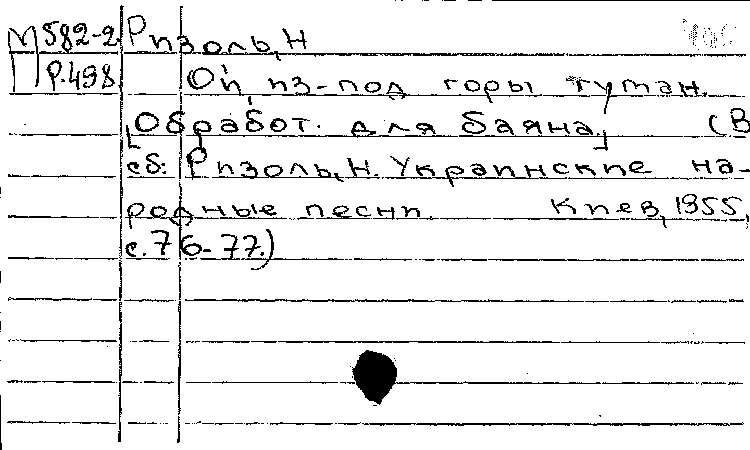 М 582-2 Ризоль, Н
Р.498 Ой, из-под горы туман.
[Обработ. для баяна] (В
сб: Ризоль, Н. Украинские на-
родные песни. Киев, 1955,
с. 76-77.)